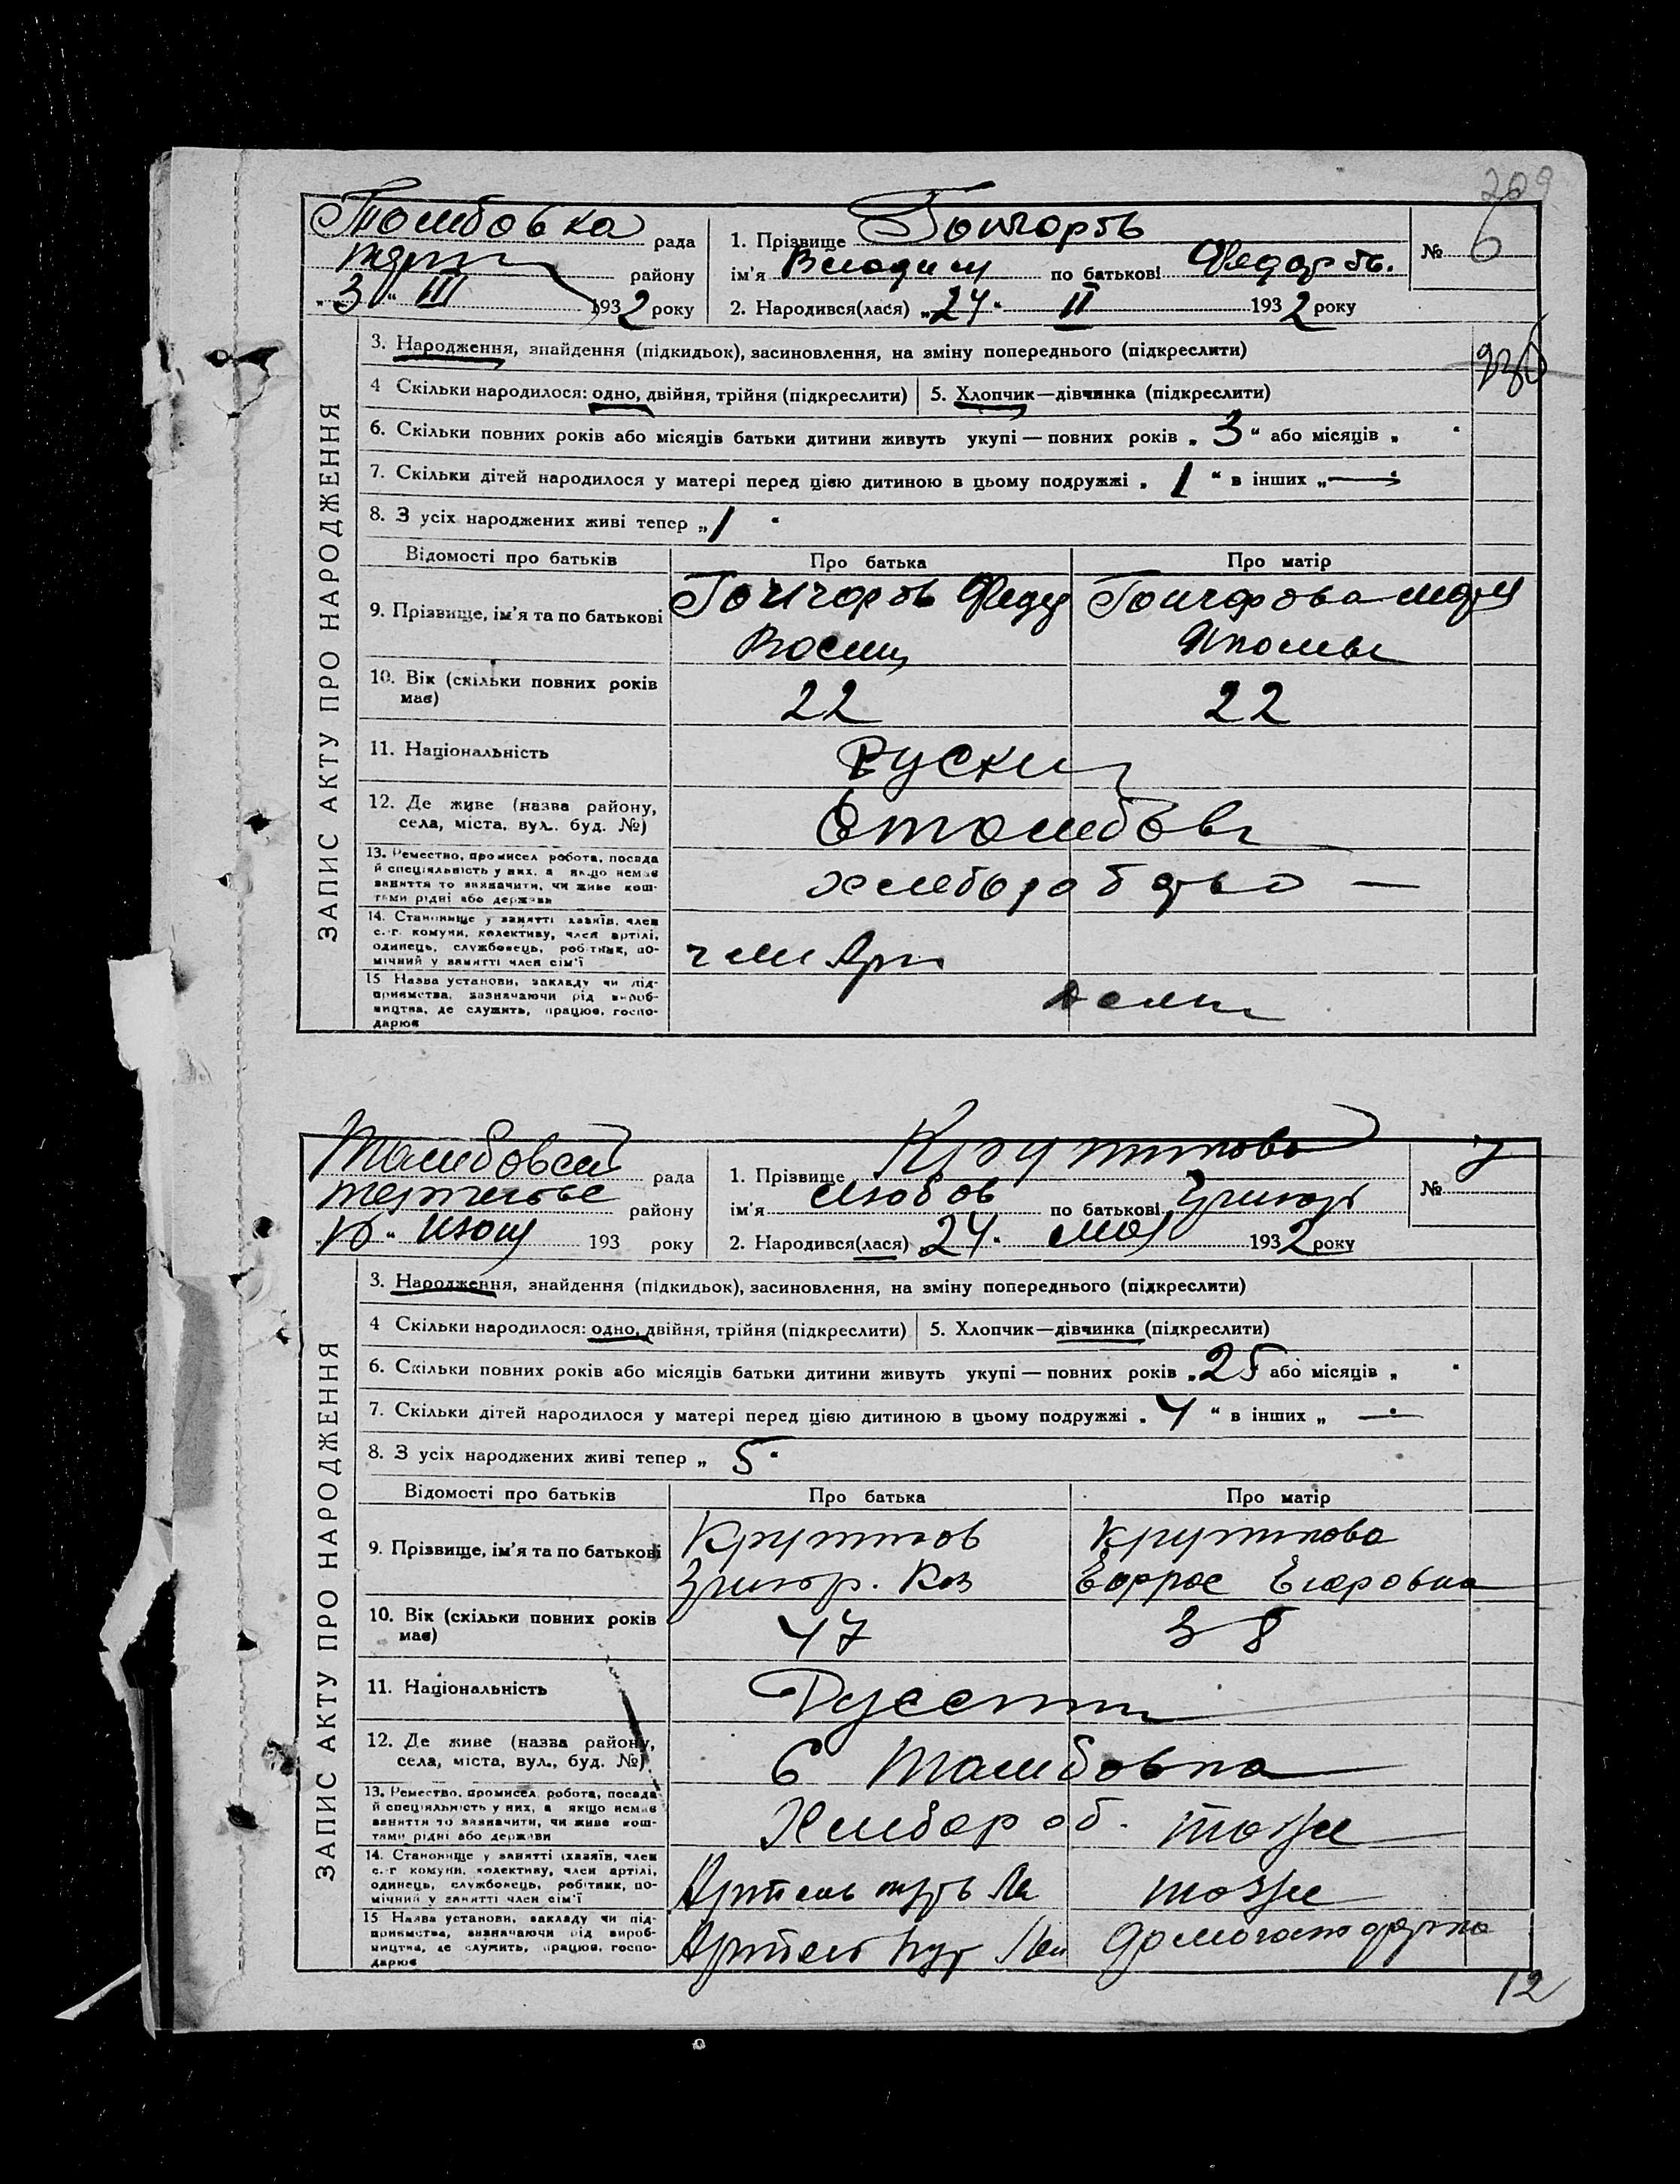 209
Тамбовка рада
району
3 " III 1932 року
1. Прізвище Гончаров
ім'я Владим по батькові Федоров.
2. Народився(лася) „24" II 1932 року
№ 6
ЗАПИС АКТУ ПРО НАРОДЖЕННЯ
3. Народження, знайдення (підкидьок), засиновлення, на зміну попереднього (підкреслити)
4 Скільки народилося: одно, двійня, трійня (підкреслити) 5. Хлопчик—дівчинка (підкреслити)
6. Скільки повних років або місяців батьки дитини живуть укупі — повних років „ 3 " або місяців „ "
7. Скільки дітей народилося у матері перед цією дитиною в цьому подружжі „ 1 " в інших „ — "
8. З усіх народжених живі тепер „ 1 "
Відомості про батьків Про батька Про матір
9. Прізвище, ім'я та по батькові Гончаров Федор Гончарова
10. Вік (скільки повних років 22 22
має)
11. Національність Руский
12. Де живе (назва району,
села, міста, вул. буд. №)
13. Ремество, промисел робота, посада
й спеціяльність у них, а якщо немає
заняття то зазначити, чи живе кош-
тами рідні або держави
14. Становище у занятті хазяїн, член
с.-г. комуни, колективу, член артілі,
одинець, службовець, робітник, по-
мічний у занятті член сім'ї
15 Назва установи, закладу чи під-
приємства, зазначаючи рід вироб-
ництва, де служить, працює, госпо-
дарює
рада
району
193 року
1. Прізвище Крутикова
ім'я Любов по батькові Григор
2. Народився(лася) „24" мая 1932 року
№ 7
ЗАПИС АКТУ ПРО НАРОДЖЕННЯ
3. Народження, знайдення (підкидьок), засиновлення, на зміну попереднього (підкреслити)
4 Скільки народилося: одно, двійня, трійня (підкреслити) 5. Хлопчик—дівчинка (підкреслити)
6. Скільки повних років або місяців батьки дитини живуть укупі — повних років „25 або місяців „ "
7. Скільки дітей народилося у матері перед цією дитиною в цьому подружжі „ 4 " в інших „ — "
8. З усіх народжених живі тепер „ 5 "
Відомості про батьків Про батька Про матір
9. Прізвище, ім'я та по батькові Крутиков Крутикова
Григор. Егоровна
10. Вік (скільки повних років 47 38
має)
11. Національність
12. Де живе (назва району, С Тамбовка
села, міста, вул., буд. №)
13. Ремество, промисел, робота, посада Хлебороб. тоже
й спеціяльність у них, а якщо немає
заняття то зазначити, чи живе кош-
тами рідні або держави
14. Становище у занятті (хазяїн, член Артель путь Ле тоже
с.-г. комуни, колективу, член артілі,
одинець, службовець, робітник, по-
мічний у занятті член сім'ї
15 Назва установи, закладу чи під- Артель пут Лен
приємства, зазначаючи рід вироб-
ництва, де служить, працює, госпо-
дарює
12